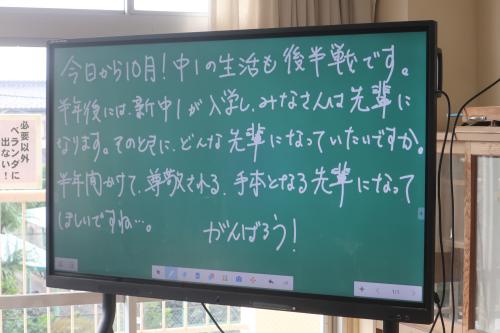 今日から10月！中1の生活も後半戦です。
半年後には、新中1が入学し、みなさんは先輩に
なります。そのときに、どんな先輩になっていたいですか。
半年間かけて、尊敬される、手本となる先輩になって
ほしいですね…。
がんばろう！
必要以外
ベランダに
出ない！
1/1